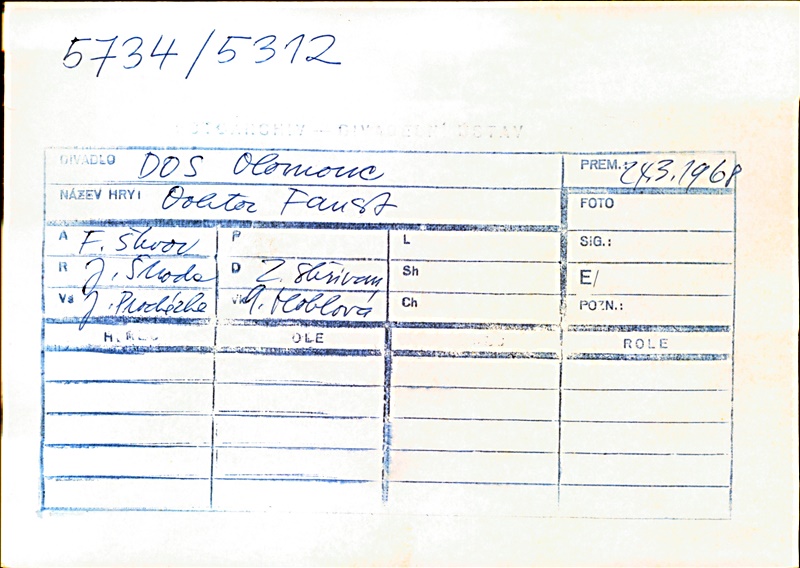 5734/5312
DIVADLO DOS Olomouc PREM.: 24.3.1968
NÁZEV HRY: Doktor Faust FOTO
A F. Škvor P L SIG.:
R J. Škoda D Z. Střivan Sh E/
Vs J. Procházka Vk A. Hoblová Ch POZN.:
HEREC ROLE ROLE